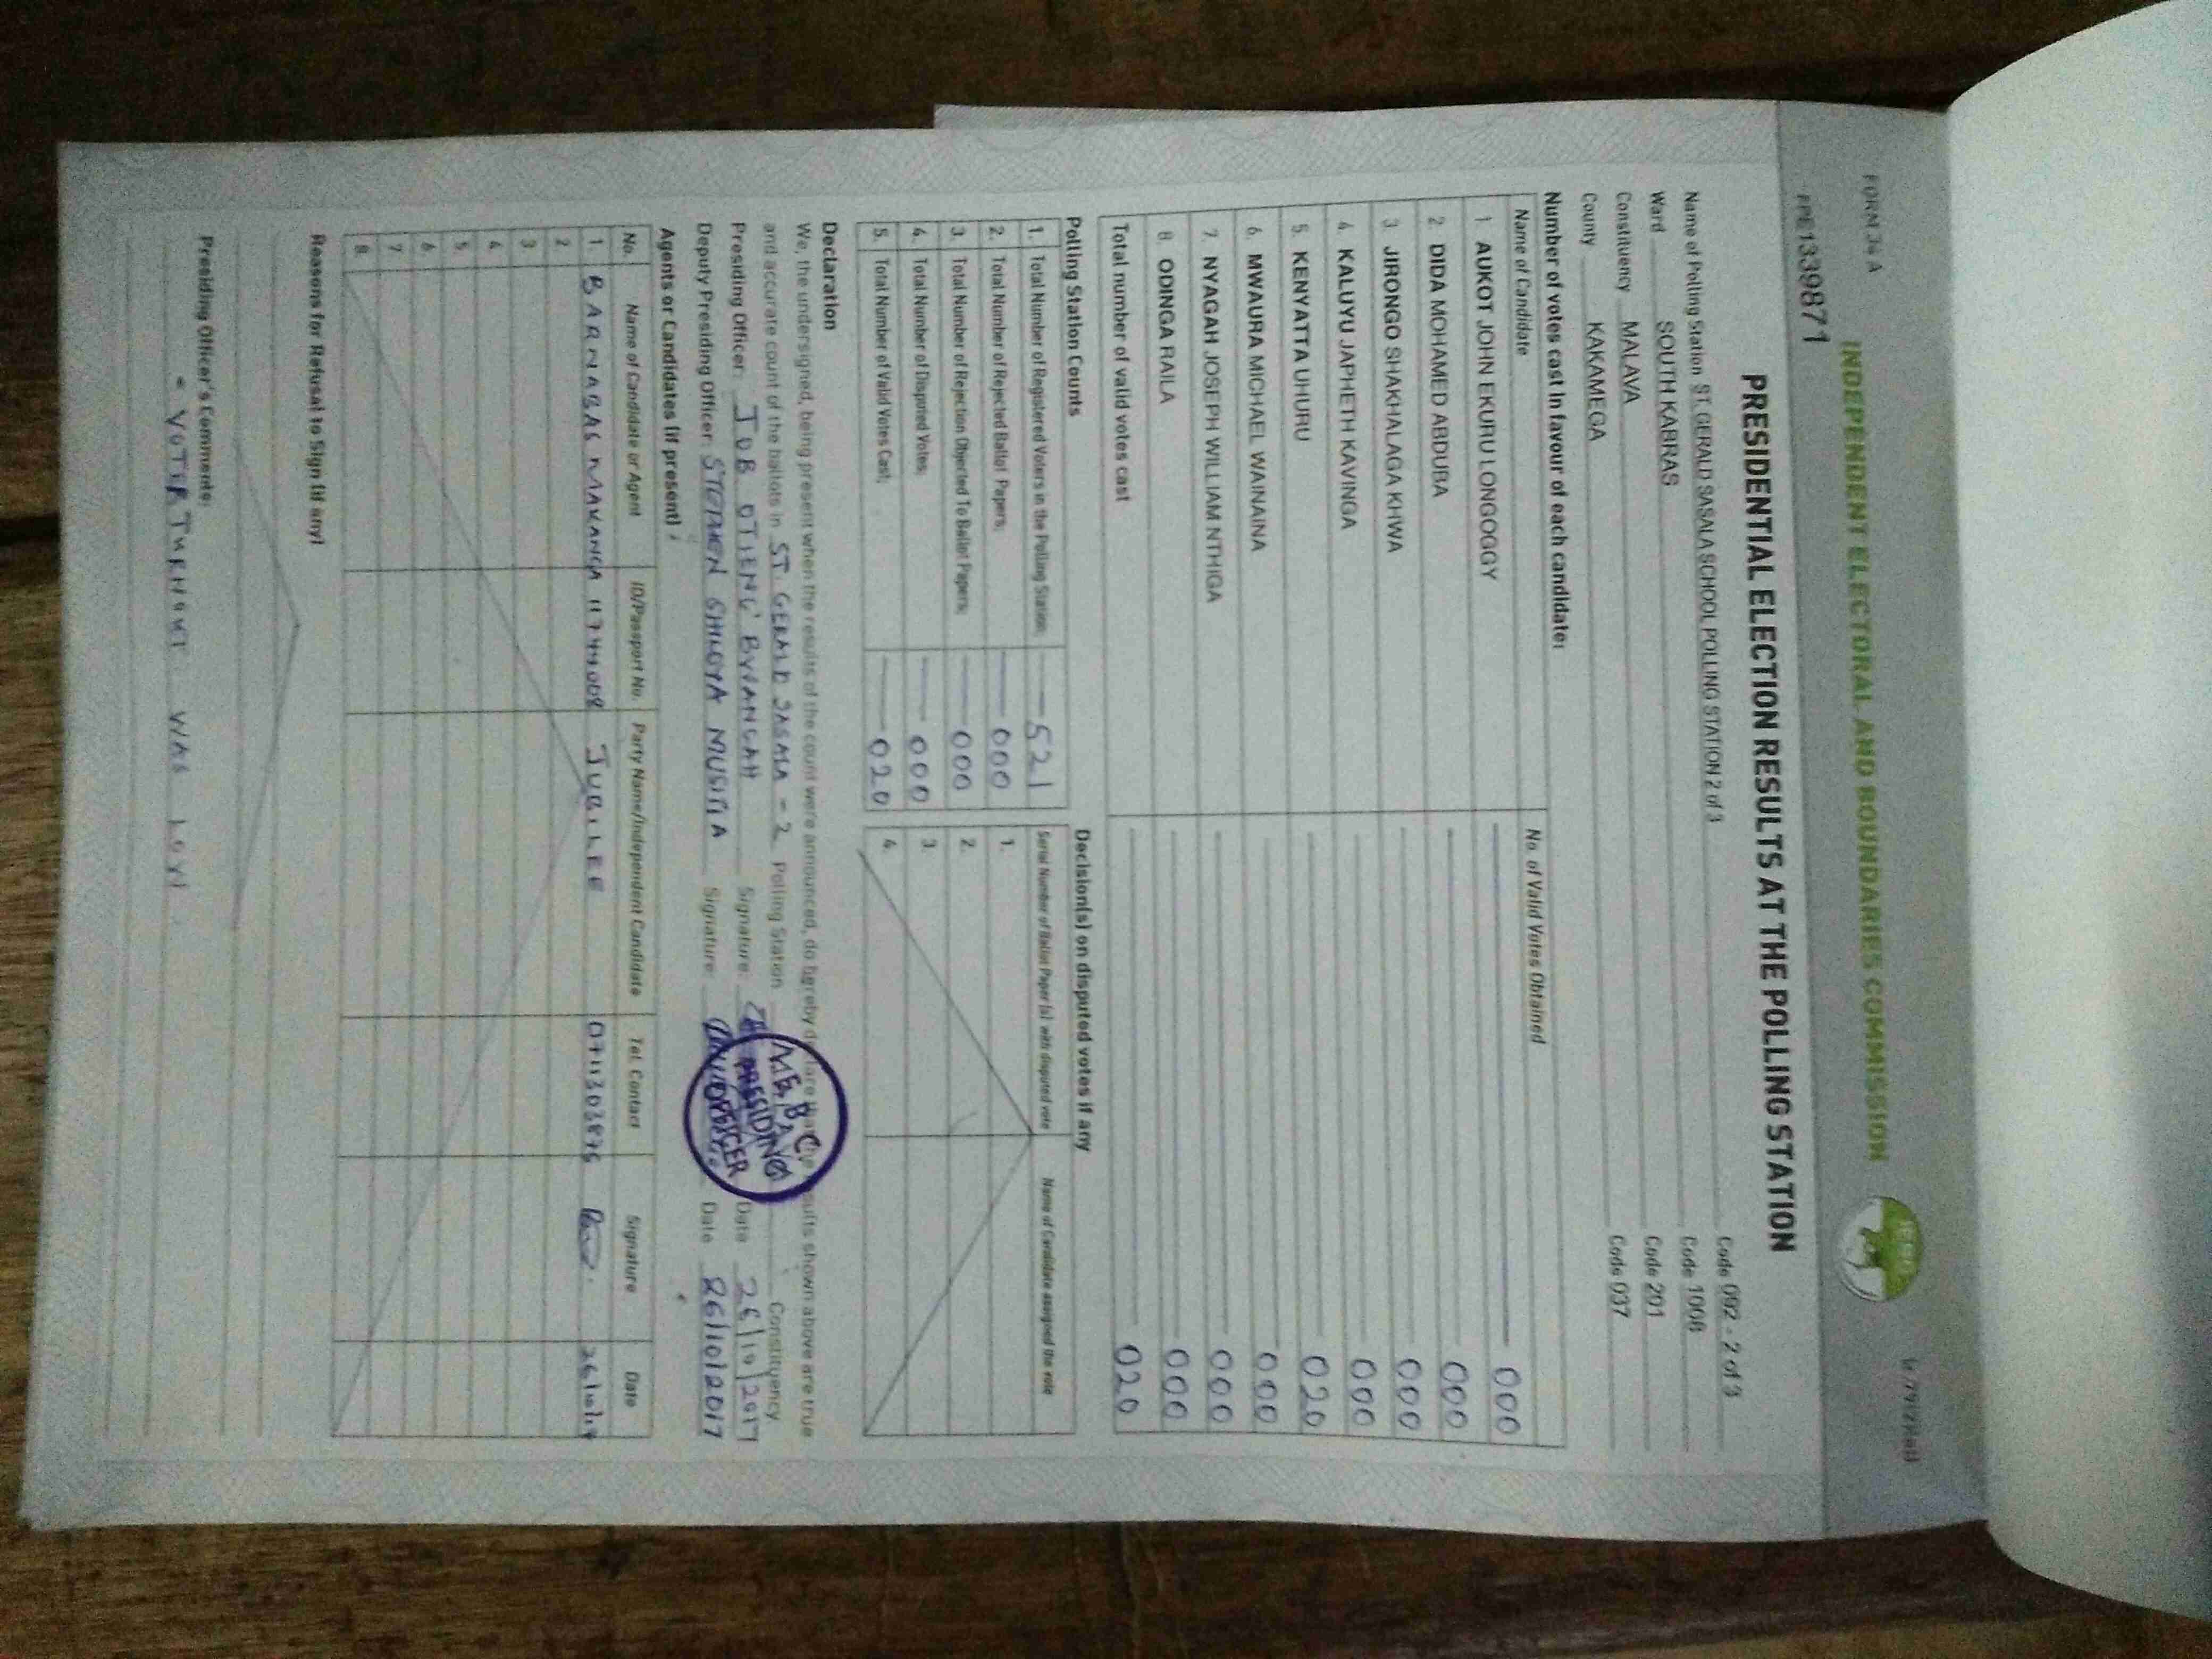 FORM 34 A
INDEPENDENT ELECTORAL AND BOUNDARIES COMMISSION
IEBC
PRE1339871
PRESIDENTIAL ELECTION RESULTS AT THE POLLING STATION
Name of Polling Station ST. GERALD SASALA SCHOOL POLLING STATION 2 of 3 Code 092 - 2 of 3
Ward SOUTH KABRAS Code 1008
Constituency MALAVA Code 201
County KAKAMEGA Code 037
Number of votes cast in favour of each candidate:
Name of Candidate No. of Valid Votes Obtained
1. AUKOT JOHN EKURU LONGOGGY 000
2. DIDA MOHAMED ABDUBA 000
3. JIRONGO SHAKHALAGA KHWA 000
4. KALUYU JAPHETH KAVINGA 000
5. KENYATTA UHURU 020
6. MWAURA MICHAEL WAINAINA 000
7. NYAGAH JOSEPH WILLIAM NTHIGA 000
8. ODINGA RAILA 000
Total number of valid votes cast 020
Polling Station Counts
1. Total Number of Registered Voters in the Polling Station: 521
2. Total Number of Rejected Ballot Papers; 000
3. Total Number of Rejection Objected To Ballot Papers; 000
4. Total Number of Disputed Votes; 000
5. Total Number of Valid Votes Cast; 020
Decision(s) on disputed votes if any
Serial Number of Ballot Paper (s) with disputed vote Name of Candidate assigned the vote
1.
2.
3.
4.
Declaration
We, the undersigned, being present when the results of the count were announced, do hereby declare that the results shown above are true
and accurate count of the ballots in ST. GERALD SASALA - 2 Polling Station Constituency
Presiding Officer: JOB OTIENG' BWANGAH Signature: Date 26/10/2017
Deputy Presiding Officer: STEPHEN SHILOYA MUSIMA Signature: Date 26/10/2017
PRESIDING
OFFICER
Agents or Candidates (if present)
No. Name of Candidate or Agent ID/Passport No. Party Name/Independent Candidate Tel. Contact Signature Date
1. BARNABAS MAKANGA 11744008 JUBILEE 0711303875 26/10/17
2
3
4
5
6
7
8
Reasons for Refusal to Sign (if any)
Presiding Officer's Comments:
- VOTER TURNOUT WAS LOW.